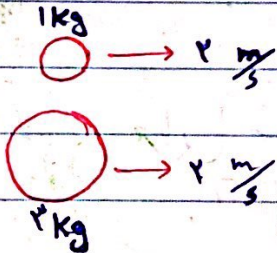 1Kg
۲ m/s
۲ m/s
۳Kg